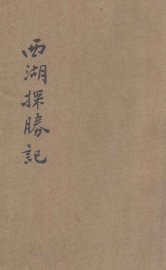 西湖探勝記